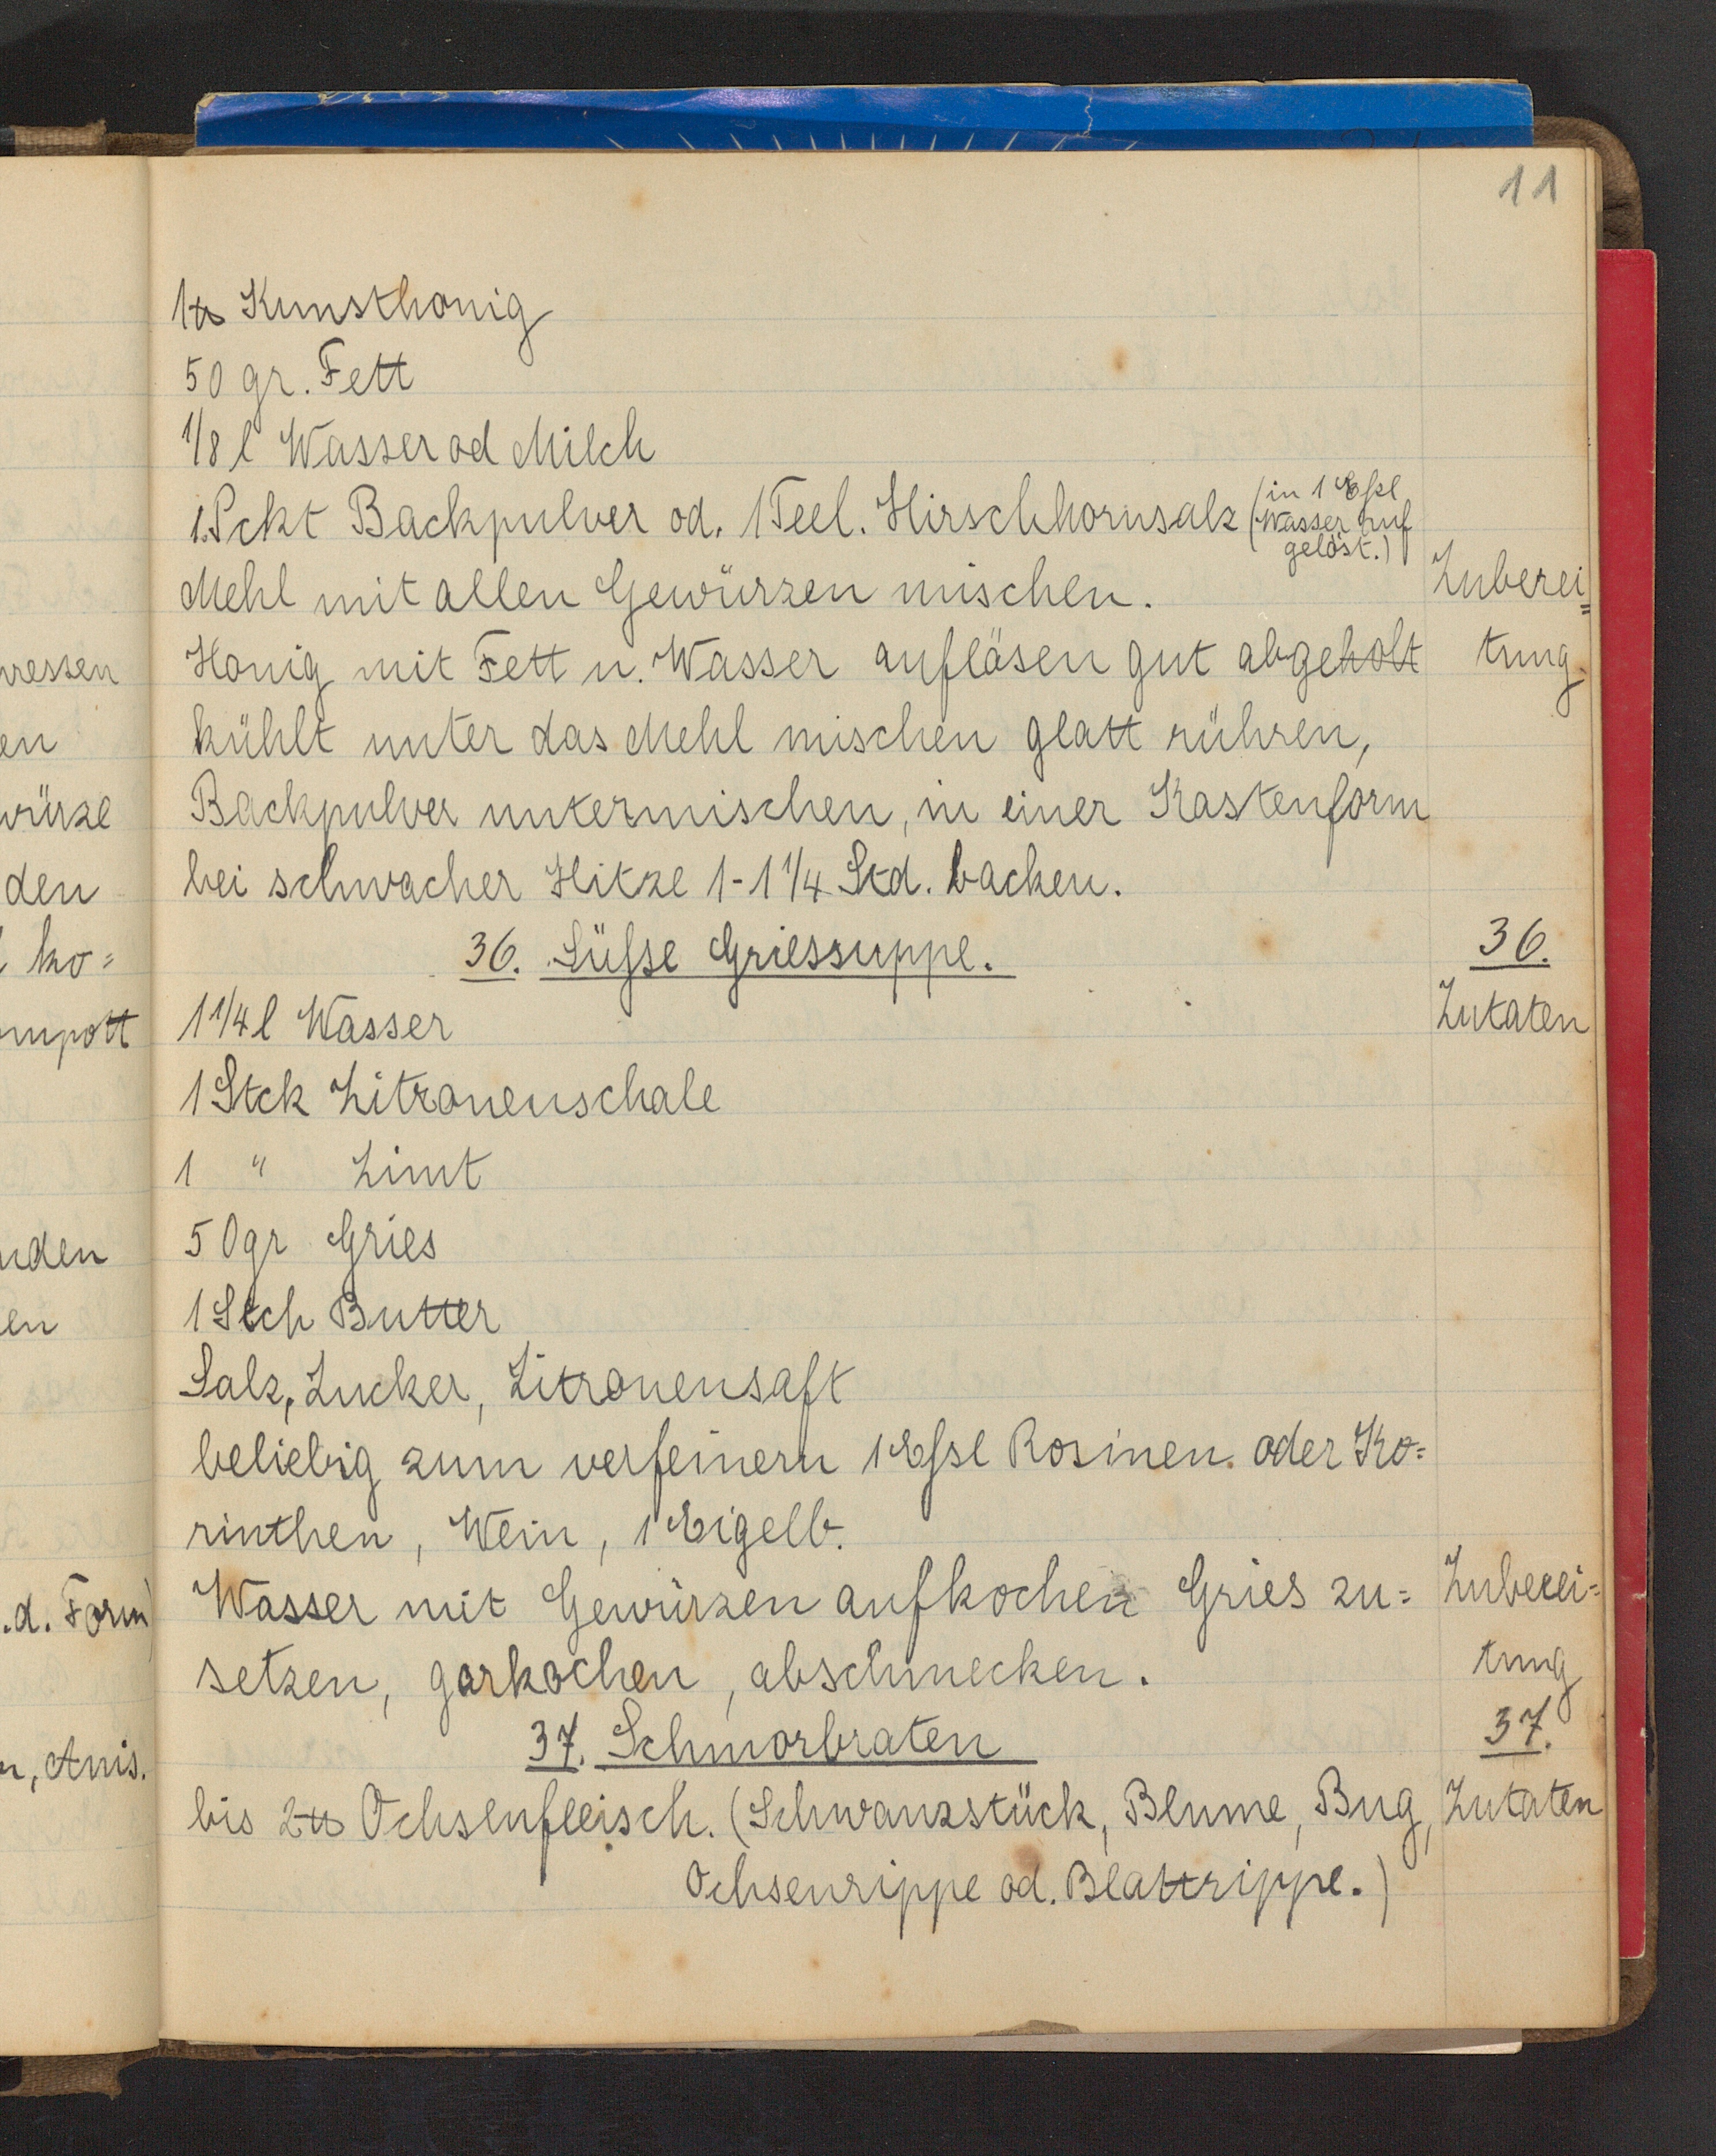 11
1 ℔ Kunsthonig
50 gr. Fett
1/8 l Wasser od Milch
1. Pckt Backpulver od. 1 Teel. Hirschhornsalz (in 1 Eßl
Wasser auf
gelöst.)
Mehl mit allen Gewürzen mischen. Zuberei=
Honig mit Fett u. Wasser auflösen gut abgeholt tung.
kühlt unter das Mehl mischen glatt rühren,
Backpulver untermischen, in einer Kastenform
bei schwacher Hitze 1-1 1/4 Std. backen.
36. Süßse Griessuppe. 36.
1 1/4 l Wasser Zutaten
1 Stck Zitronenschale
1 " Zimt
50gr Gries
1 Stch Butter
Salz, Zucker, Zitronensaft
beliebig zum verfeinern 1 Eßsl Rosinen. oder Ko=
rinthen, Wein, 1 Eigelb.
Wasser mit Gewürzen aufkochen Gries zu= Zuberei=
setzen, garkochen, abschmecken. tung
37. Schmorbraten 37.
bis 2 ℔ Ochsenfleisch. (Schwanzstück, Blume, Bug, Zutaten
Ochsenrippe od. Blattrippe.)
ressen
en
würze
den
ko=
mpott
nden
en
.d. Form)
n, Anis.